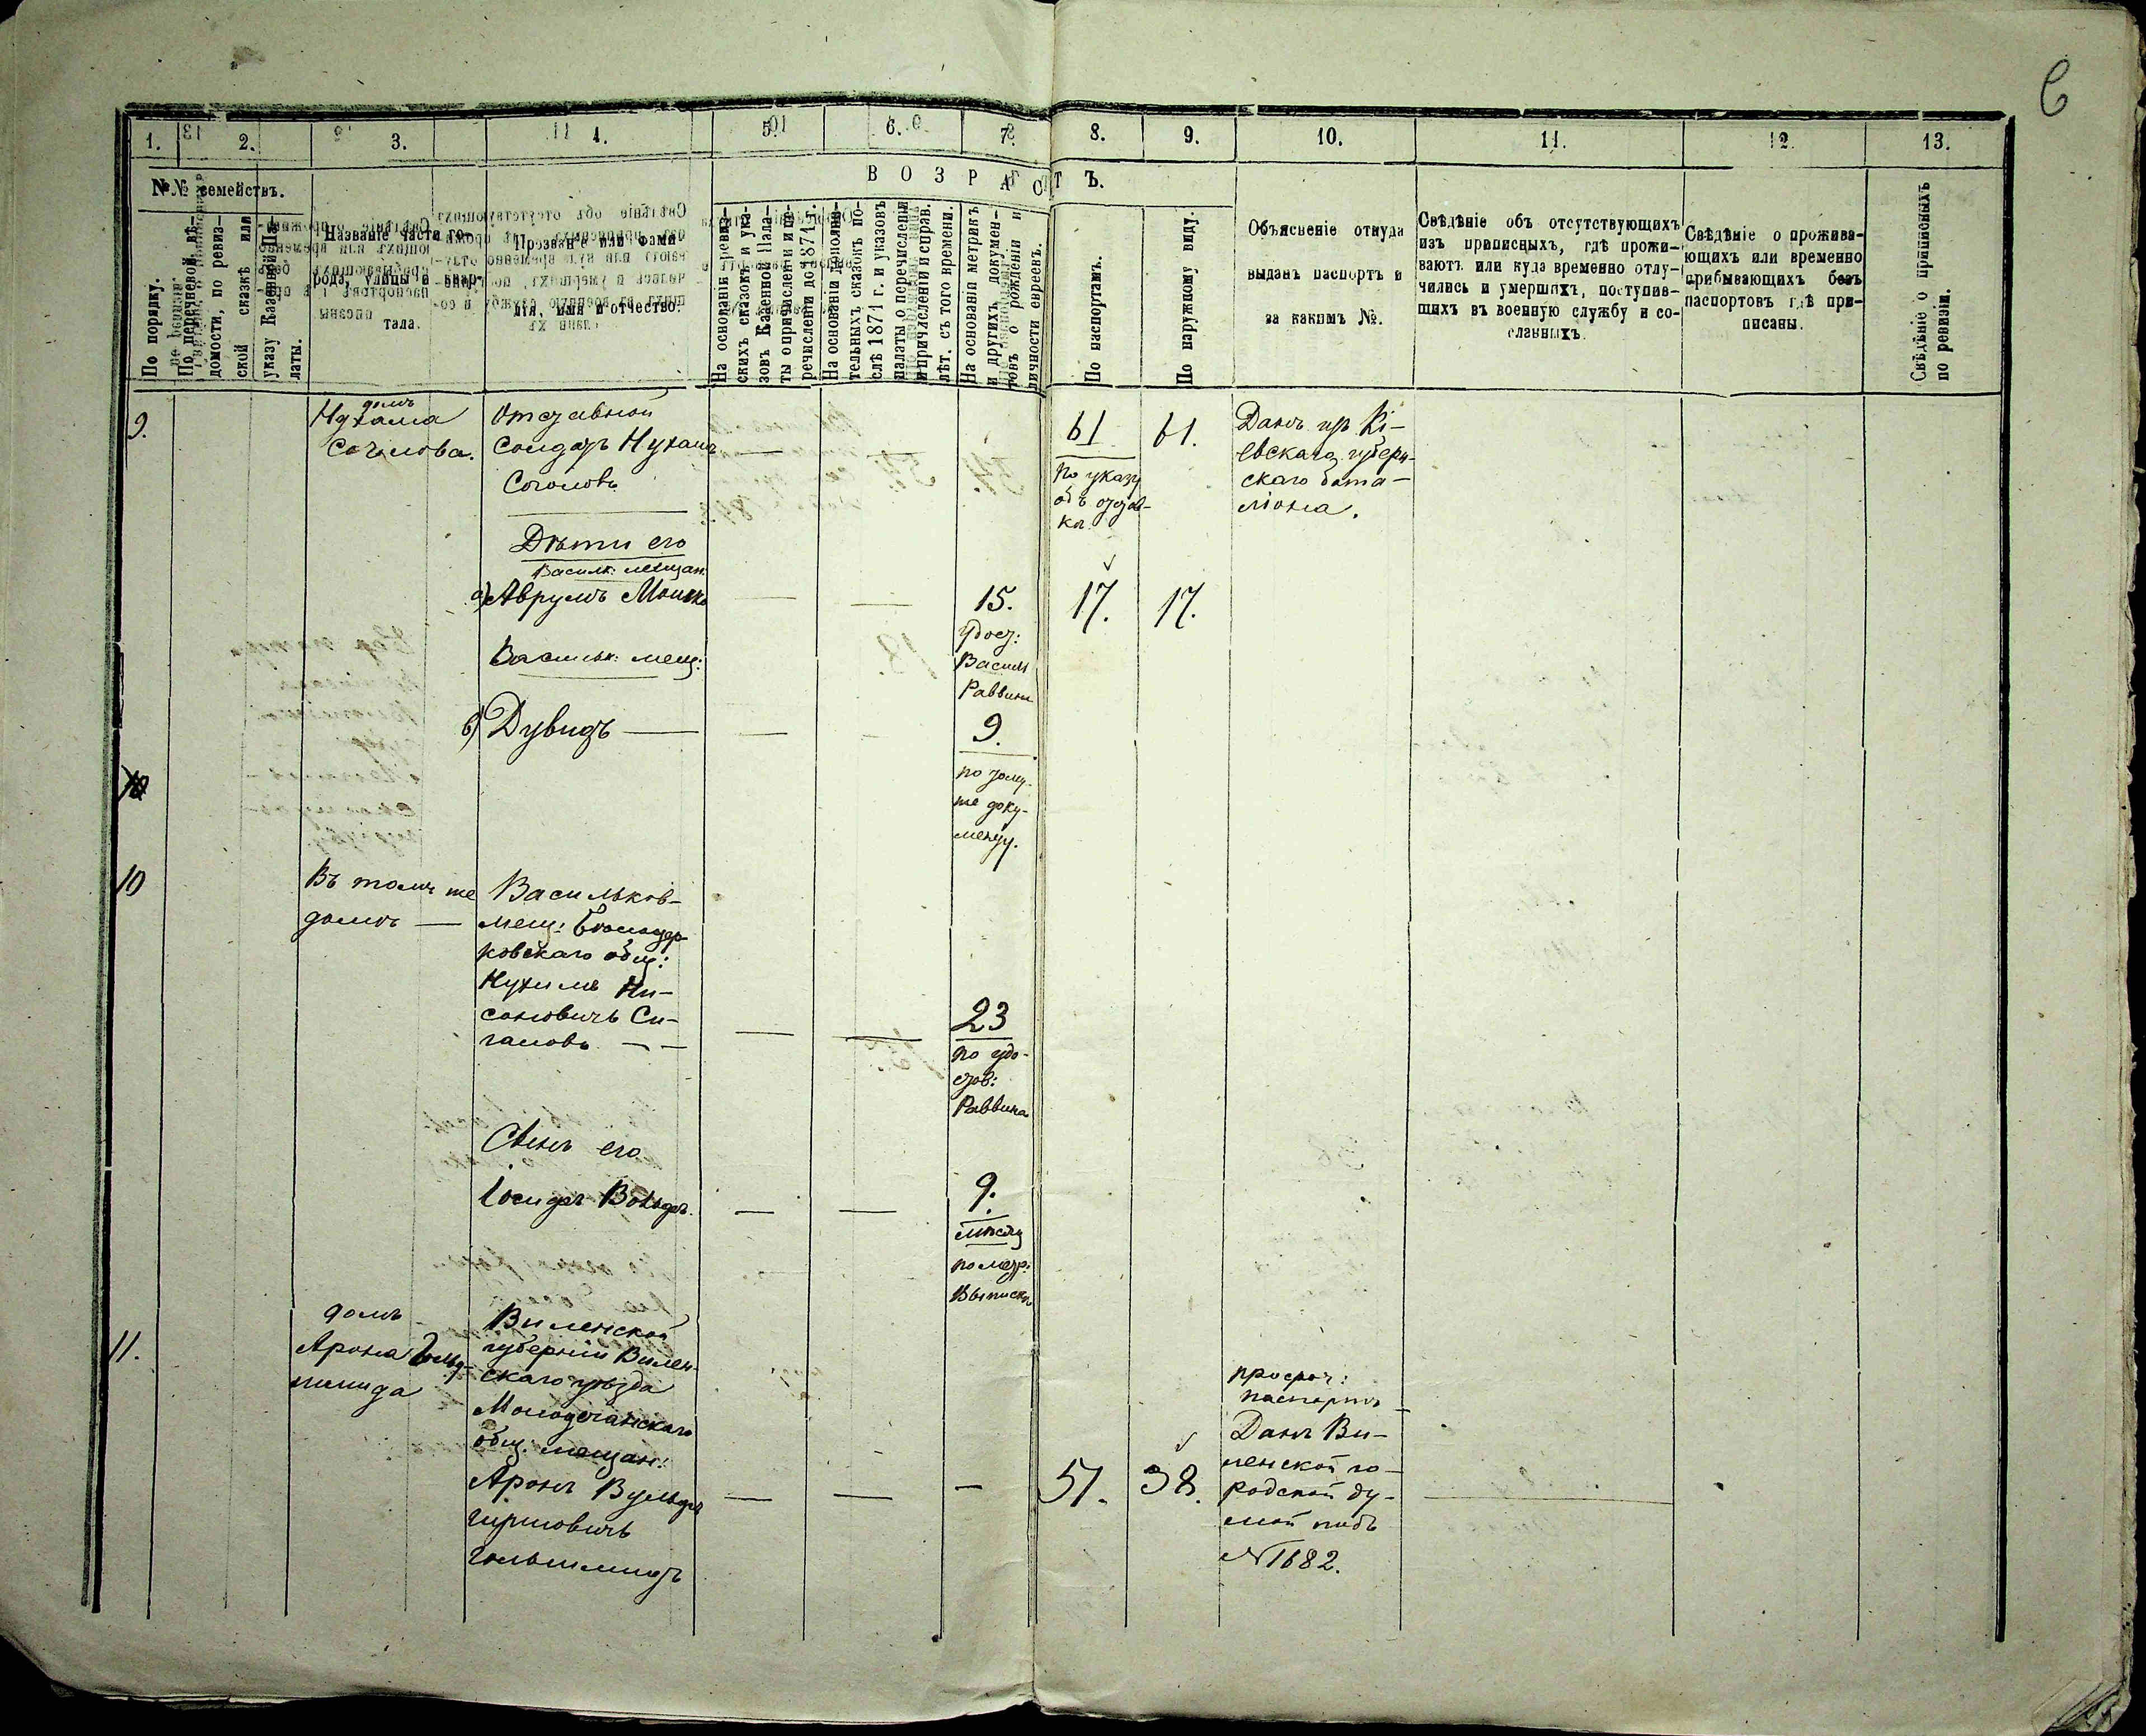 6
1. 2. 3. 4. 5. 6. 7. 8. 9. 10. 11. 12. 13.
№№ семействъ.
В О З Р А С Т Ъ.
По порядку.
По перечневой вѣ-
домости, по ревиз-
ской сказкѣ или
указу Казенной Па-
латы.
Названіе части го-
рода, улицы и квар-
тала.
Прозваніе или фами-
лія, имя и отчество.
На основаніи ревиз-
скихъ сказокъ и ука-
зовъ Казенной Пала-
ты о причисленіи и пе-
речисленіи до 1871 г.
На основаніи дополни-
тельныхъ сказокъ по-
слѣ 1871 г. и указовъ
палаты о перечисленіи
и причисленіи и справ.
лѣт. съ того времени.
На основаніи метрикъ
и другихъ докумен-
товъ о рожденіи и
личности евреевъ.
По паспортамъ.
По наружному виду.
Объясненіе откуда
выданъ паспортъ и
за какимъ №.
Свѣдѣніе объ отсутствующихъ
изъ приписныхъ, гдѣ прожи-
ваютъ или куда временно отлу-
чились и умершихъ, поступив-
шихъ въ военную службу и со-
сланныхъ.
Свѣдѣніе о прожива-
ющихъ или временно
прибывающихъ безъ
паспортовъ гдѣ при-
писаны.
Свѣдѣніе о приписныхъ
по ревизіи.
9.
домъ
Нухама
Соголова.
Отставной
Солдатъ Нухамъ
Соголовъ
61
По указу
объ отстав-
кѣ
61.
Данъ изъ Кі-
евскаго губерн-
скаго бата-
ліона.
Дѣти его
Васильк: мещан:
а) Аврумъ Мошко
15.
Удост:
Васильк
Раввина
17.
17.
Васильк: мещ:
б) Дувидъ
9.
по тому
же доку-
менту.
10
Въ томъ же
домѣ
Васильков-
мещ: Бѣлоцер-
ковскаго общ:
Нухимъ Ни-
соновичъ Си-
галовъ
23
по удо-
стов:
Раввина
Сынъ его
Іосифъ Вольфъ.
9.
мѣсяц
по метр:
Выписки
11.
домъ
Арона Гольд-
шмида
Виленской
губерніи Вилен-
скаго уѣзда
Молодечанскаго
общ. мещан:
Аронъ Вульфъ
Гиршовичъ
Гольшмидъ
51.
38.
просроч:
паспортъ
Данъ Ви-
ленской го-
родской ду-
мой подъ
№ 1682.